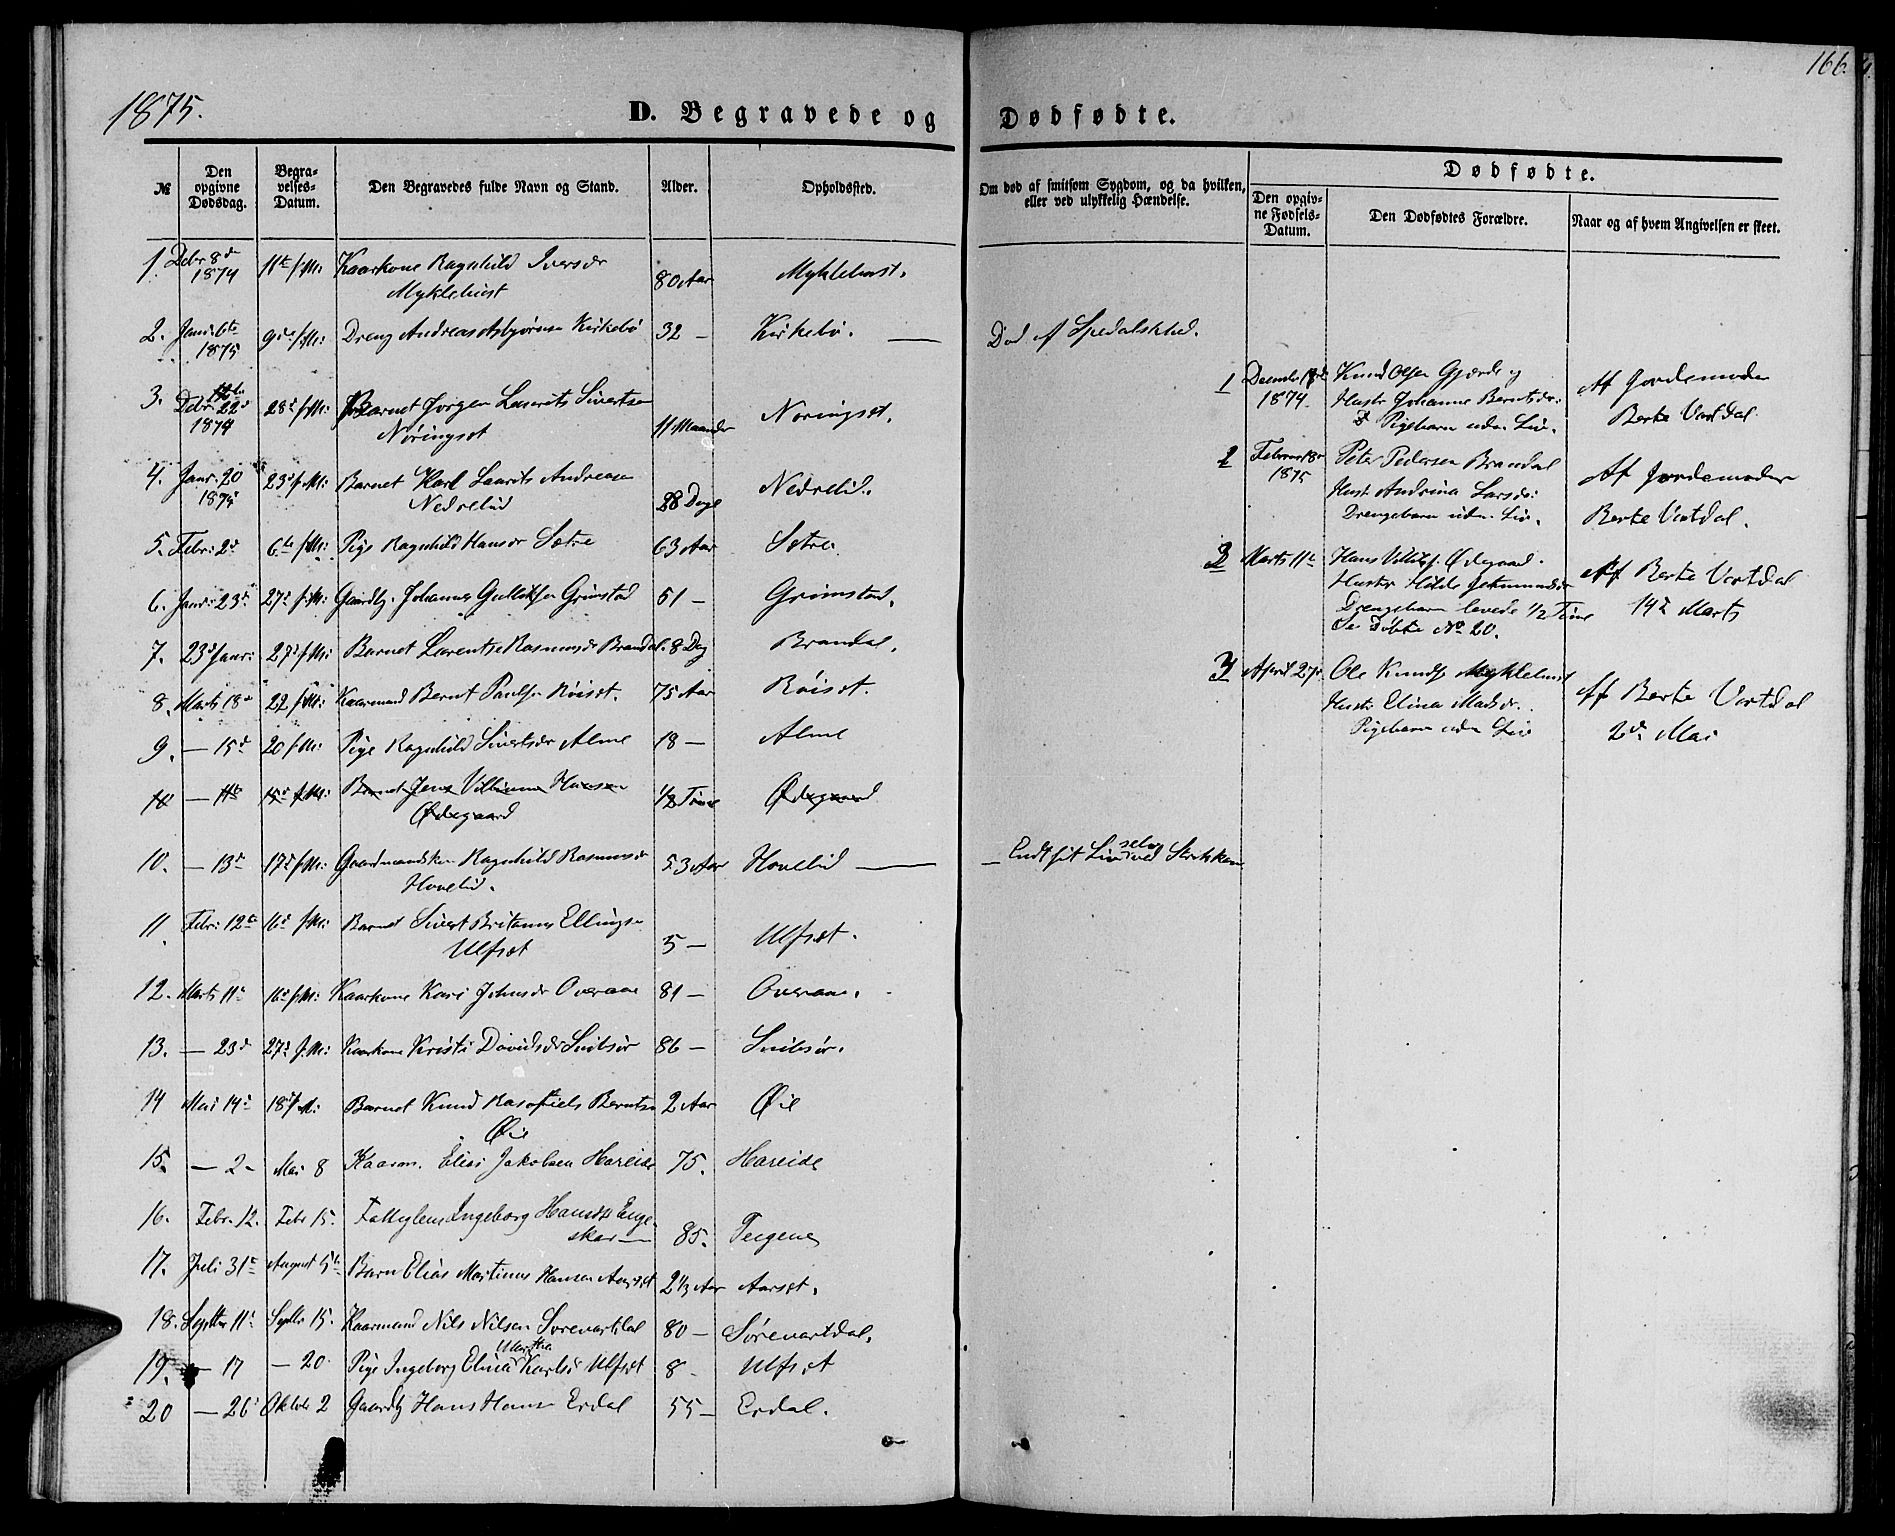 166.
1875.
D. Begravede og Dødfødte.
№
Den opgivne Dødsdag.
Begravelses-Datum.
Den Begravedes fulde Navn og Stand.
Alder.
Opholdssted.
Om død af smitsom Sygdom, og da hvilken, eller ved ulykkelig Hændelse.
Dødfødte.
Den opgivne Fødsels-Datum.
Den Dødfødtes Forældre.
Naar og af hvem Angivelsen er skeet.
1. Debr 8de 11te f: M: Kaarkone Ragnhild Iversdr 80 Aar Myklebust.
1874 Myklebust
2. Janr 6te 9de f: M: Dreng Andreas Asbjørnsen Kirkebø 32 — Kirkebø. — Død af Spedalskhed.
1875
3. Debr: 22d 28d f: M: Barnet Jørgen Laurits Sivertsen 11 Maaneder Nøringset.
1874 Nøringset
4. Janr. 20 23d f: M: Barnet Karl Laurits Andreasen 28 Dage Nedrelid.
1875 Nedrelid
5. Febr: 2d 6te f: M: Pige Ragnhild Hansdr Sætre 63 Aar Sætre.
6. Janr: 23d 27d f: M: Gaardbr. Johannes Gulliksen Grimstad 51 — Grimstad.
7. 23d Janr: 27d f: M: Barnet Larentse Rasmusdr Brandal. 8 Dag Brandal.
8. Marts 18d 22 f: M: Kaarmand Bernt Paulsen Røiset. 75 Aar Røiset.
9. — 15d 20 f: M: Pige Ragnhild Sivertsdr Alme 18 — Alme
10 — 11te 15d f: M: Barnet Jens Villiam Hansen 1/2 Time Ødegaard
Ødegaard
10. — 13d 17d f: M: Gaardmandskon Ragnhild Rasmusdr 53 Aar Hovelid — Endt sit Liv selv ved Strikken
Hovelid.
11. Febr: 12te 16d f: M: Barnet Sivert Britanus Ellingsen 5 — Ulfset.
Ulfset
12. Marts 11te 16d f: M: Kaarkone Kari Johnsdr Overaae 81 — Overaae.
13. — 23d 27d f: M: Kaarkone Kristi Davidsdr Snibsør 86 — Snibsør.
14 Mai 14d 18d f: M: Barnet Knud Rasmus Berntsen 2 Aar Øie
Øie
15. — 2 - Mai 8 Kaarm. Elias Jakobsen Hareide 75. Hareide
16. Febr. 12. Febr 15. Ingeborg Hansdr Engeskar — 85. Teigene
17. Juli 31te August 5te Barn Elias Martinus Hansen Aarset 2 1/3 Aar Aarset.
18. Septbr 11te Septbr 15. Kaarmand Nils Nilsen Sørevartdal 80 — Sørevartdal.
19. — 17 — 20 Pige Ingeborg Elina Martha Karlsdr Ulfset 8 - Ulfset
20 — 26d Oktobr 2 Gaardbr Hans Hansen Erdal 55 — Erdal.
1 December 1874 Knud Olsen Gjerde og Af Jordemoder
Hustr Johanne Berntsdr: Berte Vartdal
Pigebarn uden Liv.
2 Februar 18d Peter Pedersen Brandal Af Jordemoder
1875 Hust. Andrina Larsdr: Berte Vartdal.
Drengebarn uden Liv.
3 Marts 11te Hans Villiamsen Ødegaard. Af Berte Vartdal
Hustr Hilde 14d Marts
Drengebarn levede 1/2 Time
Se Døbte No 20.
3 April 27d Ole Knudsen Myklebust Af Berte Vartdal
Hustr. Elina Madsdr. 2d Mai
Pigebarn uden Liv